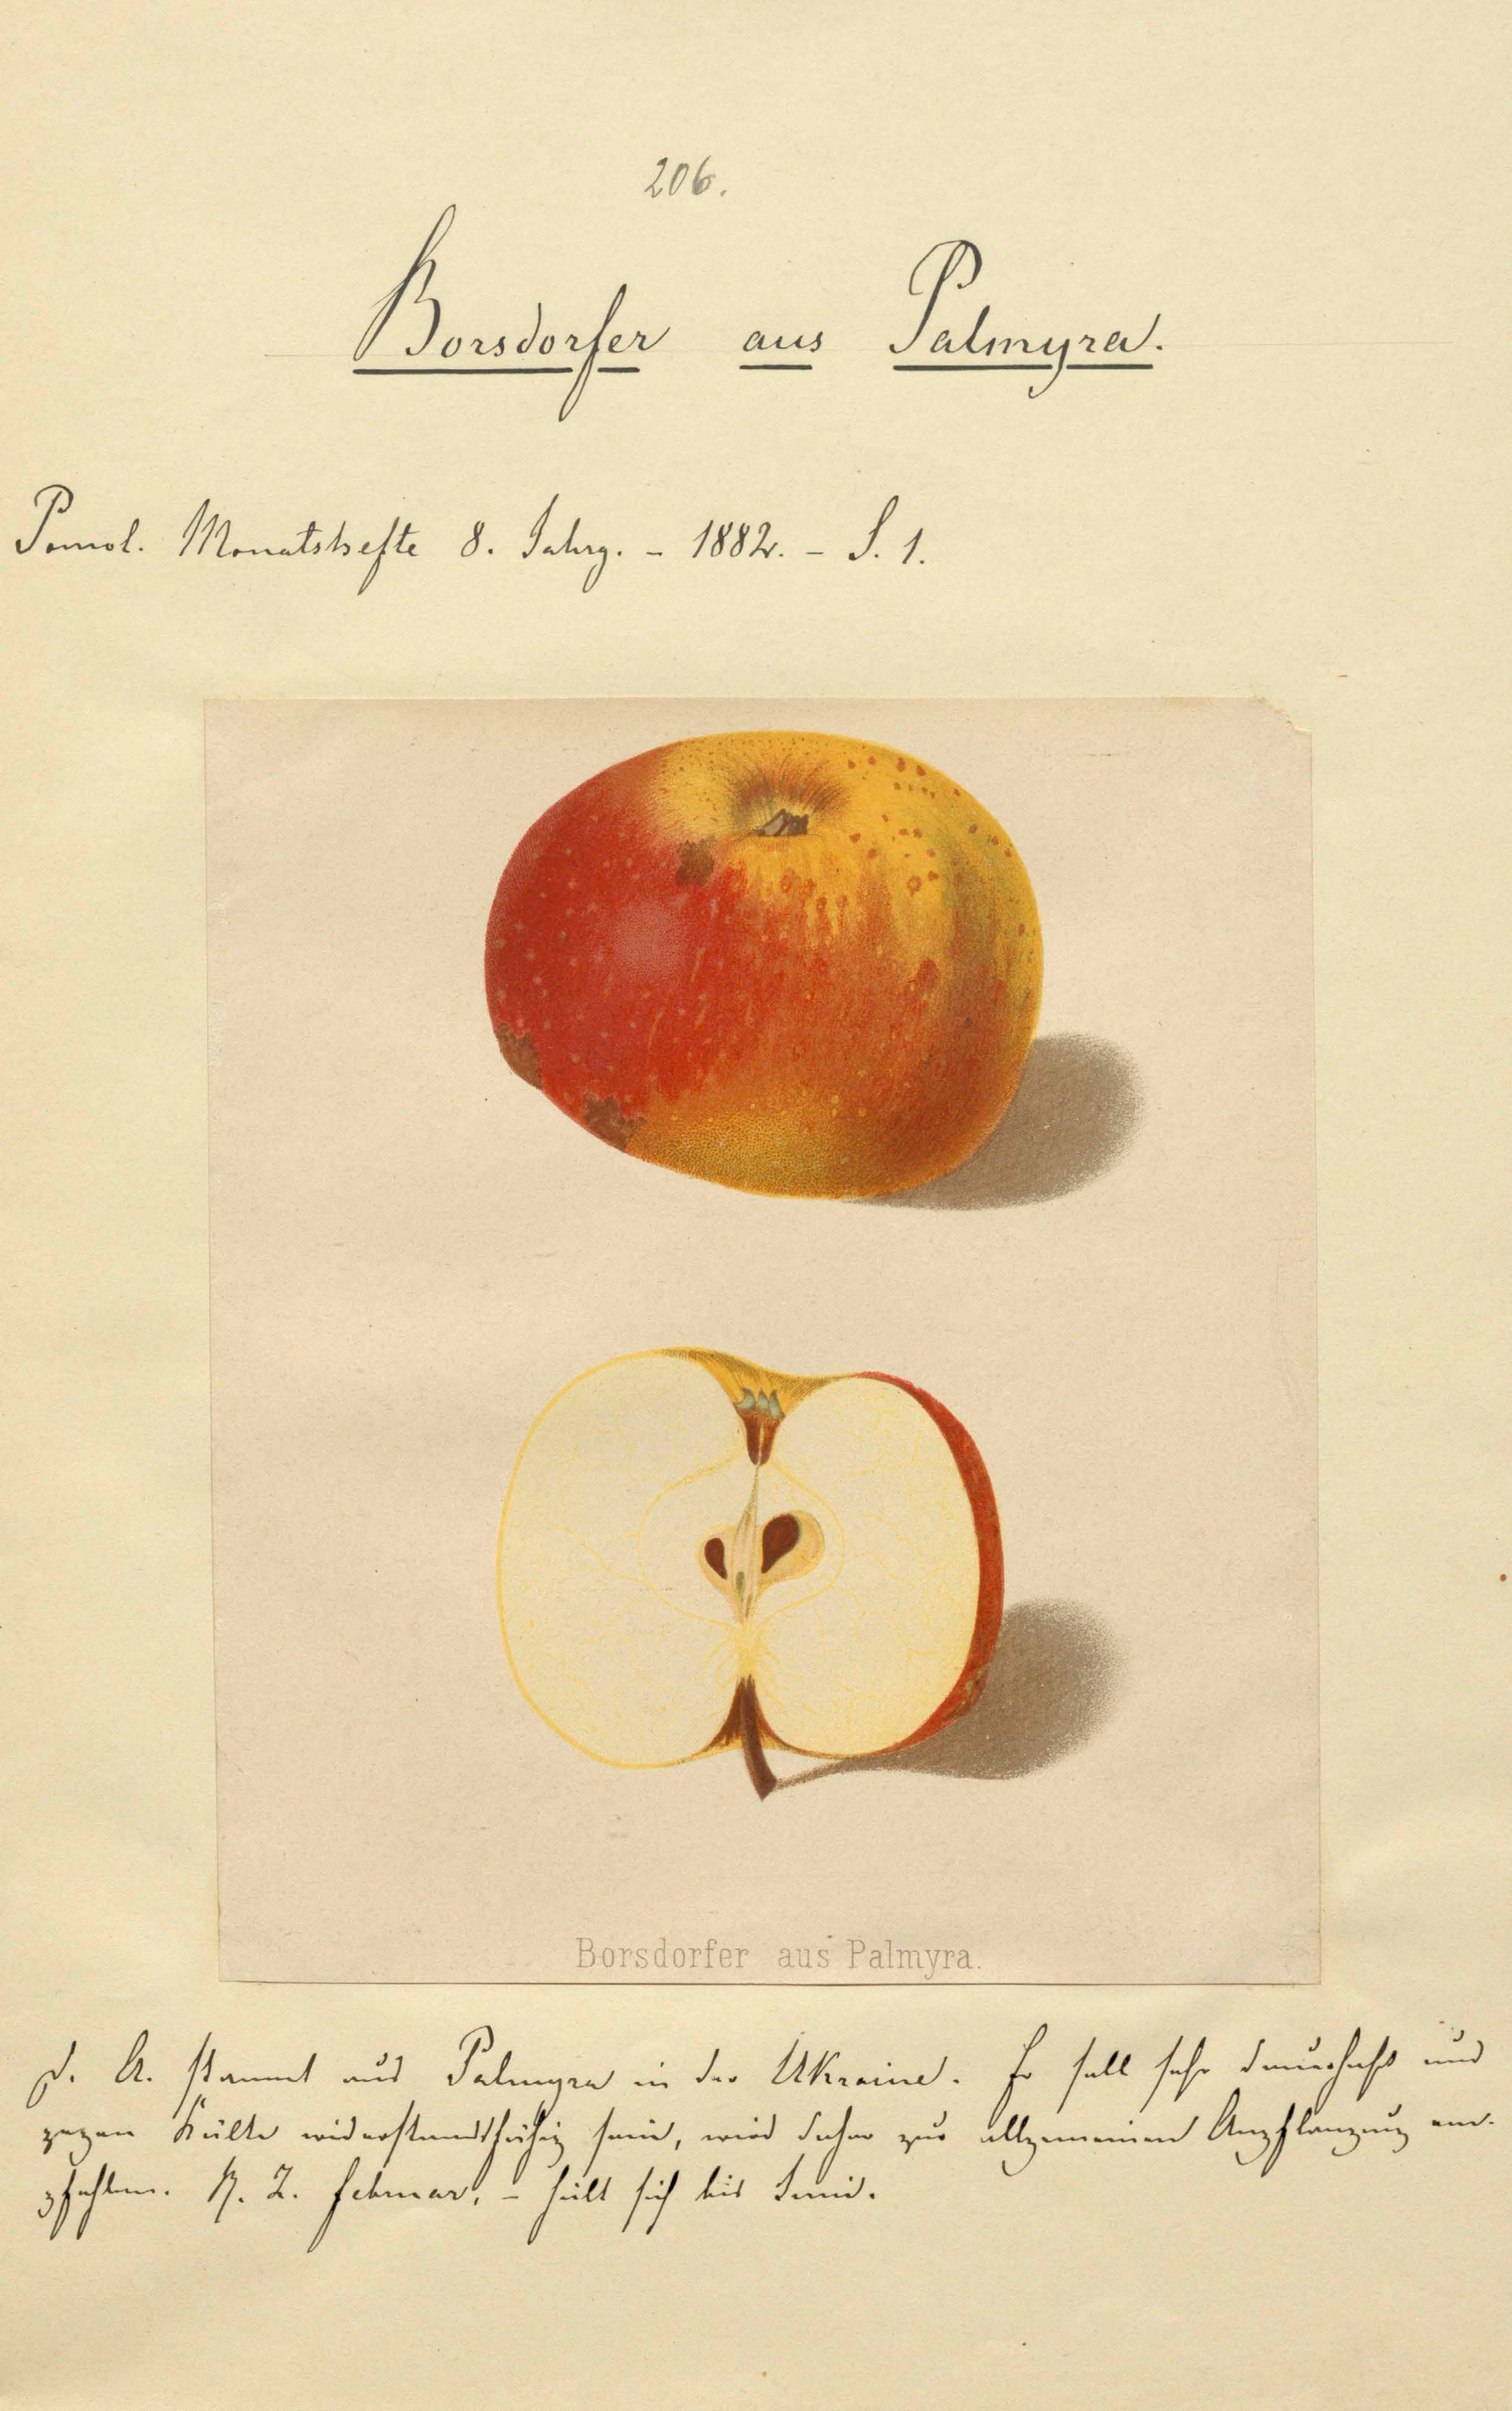 206.
Borsdorfer aus Palmyra.
Pomol. Monatshefte 8. Jahrg. - 1882. - S. 1.
Borsdorfer aus Palmyra.
D. A. stammt aus Palmyra in der Ukraine. Er soll sehr dauerhaft und
gegen Kälte widerstandsfähig sein, wird daher zur allgemeinen Anpflanzung em-
pfohlen. R. Z. Februar, - hält sich bis Juni.